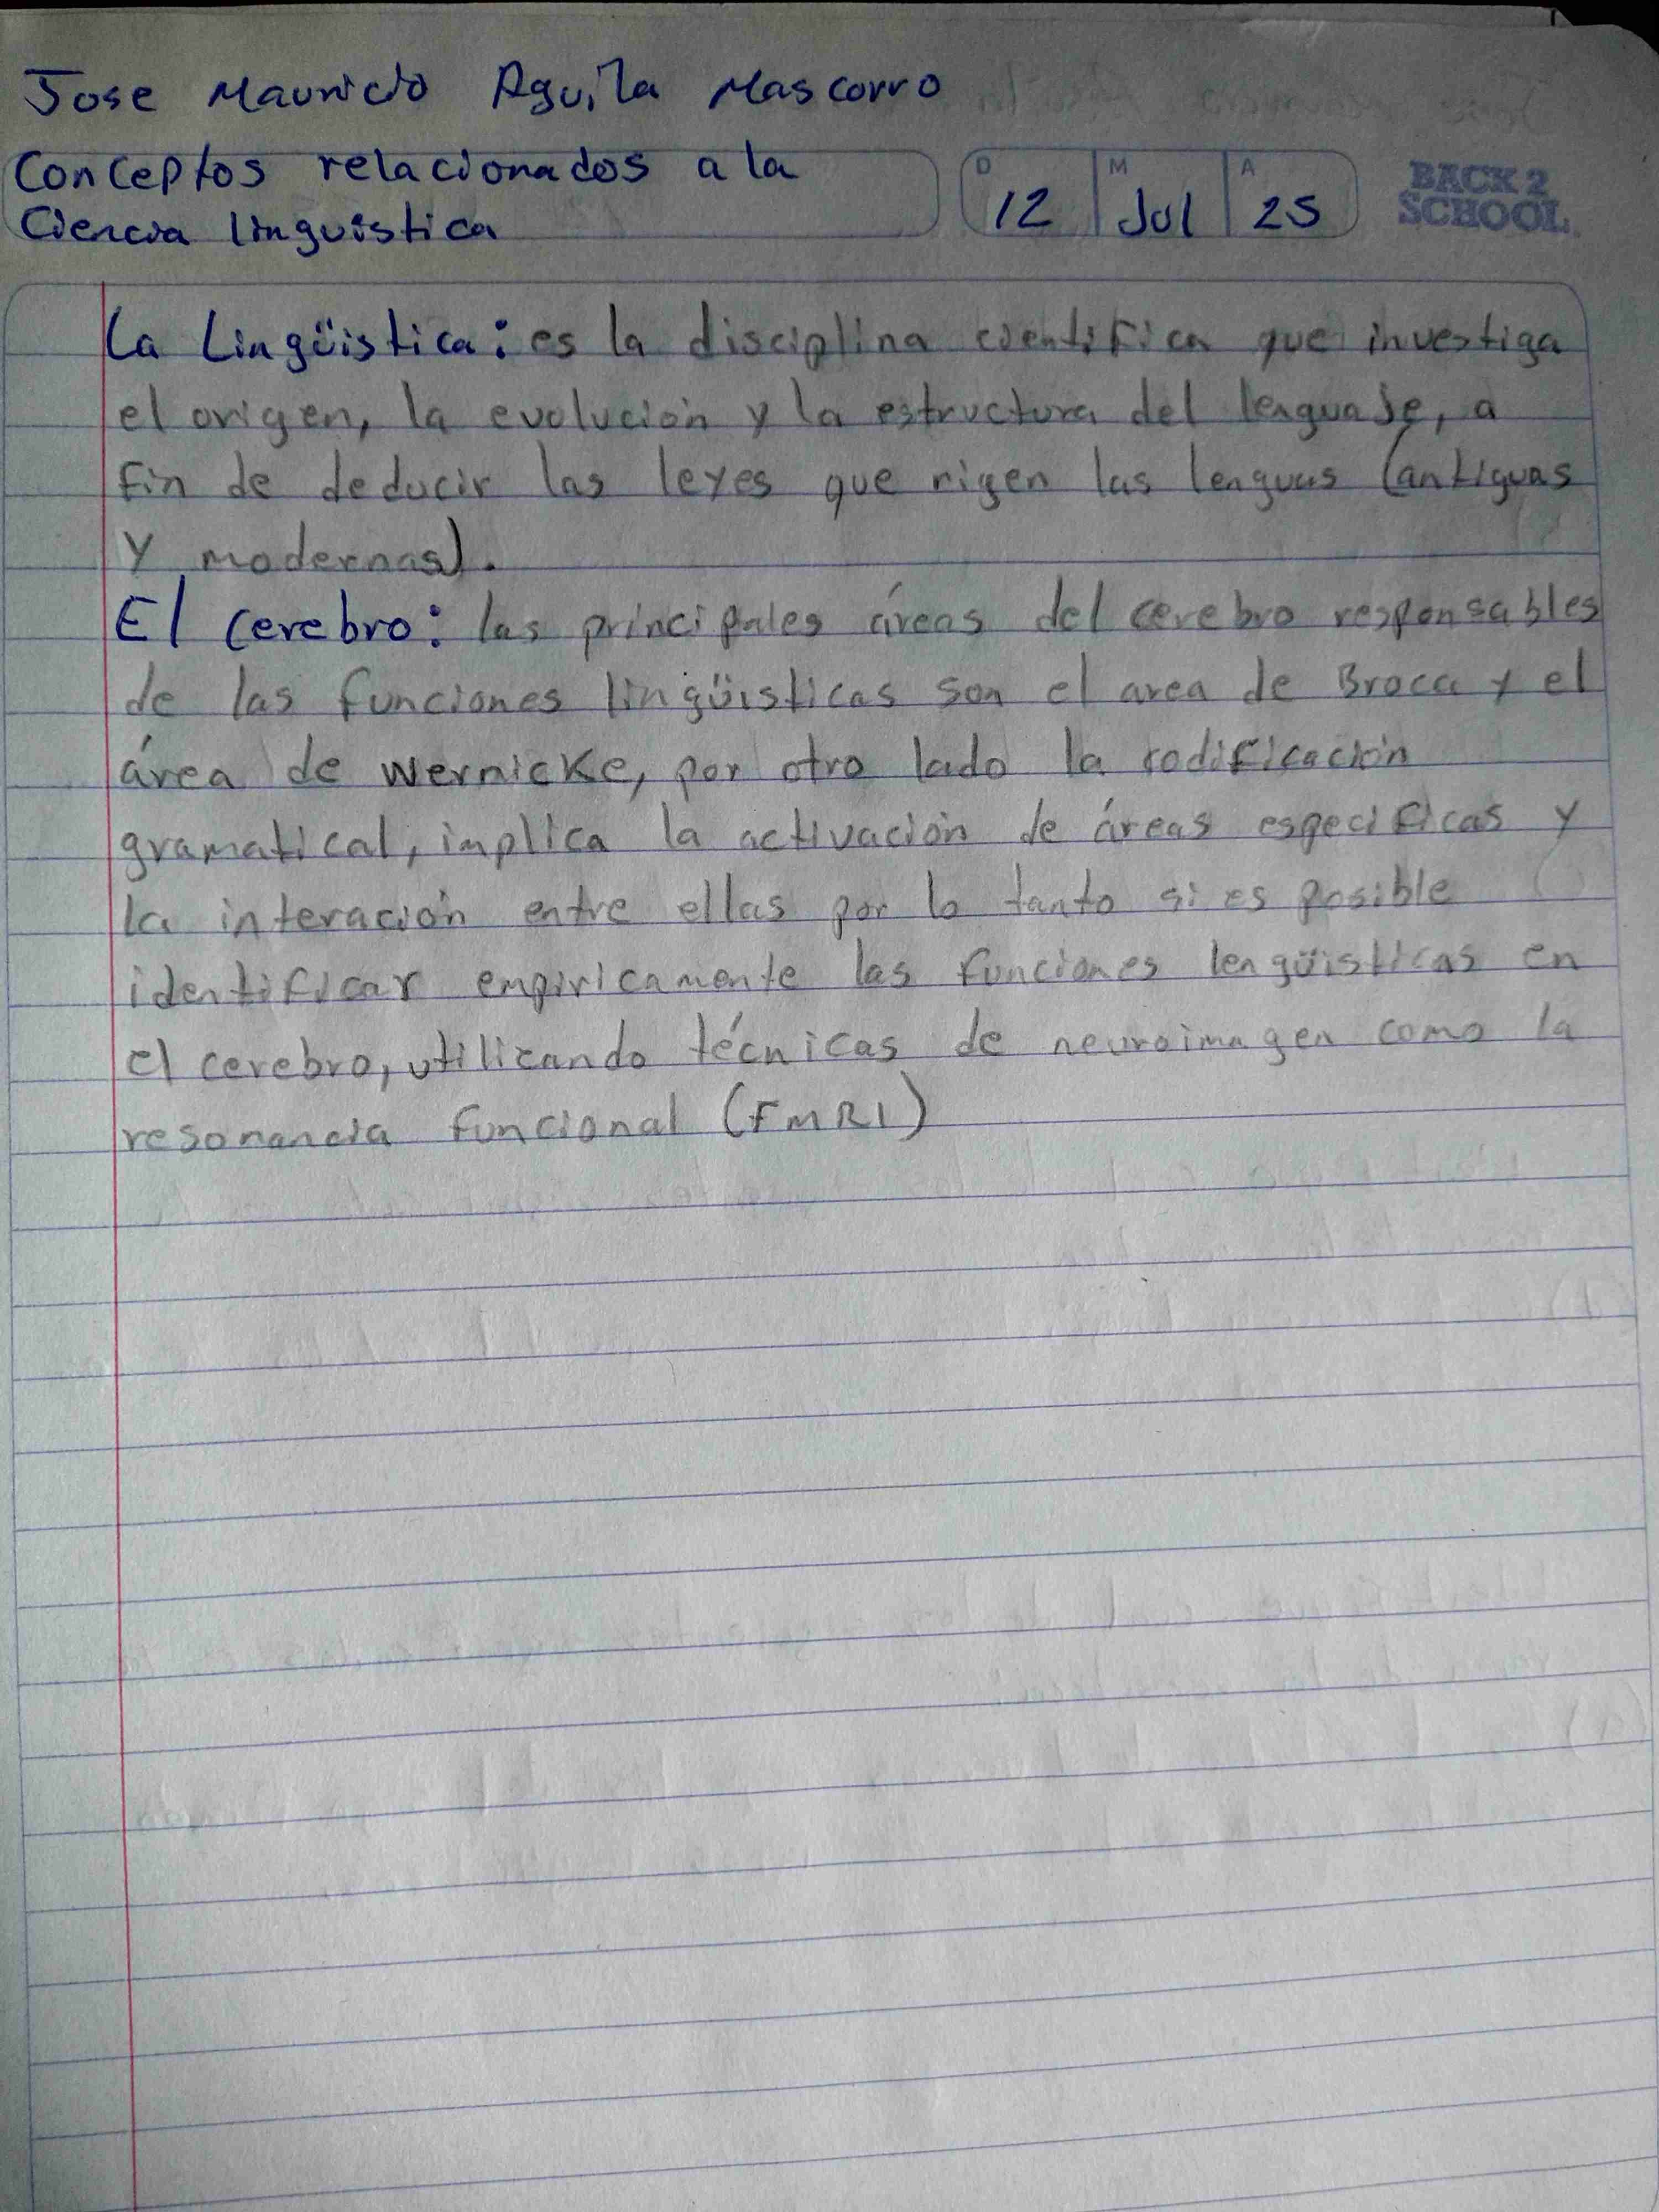 Jose Mauricio Aguila Mascorro
Conceptos relacionados a la
Ciencia linguistica
D 12 M Jul A 25
BACK 2
SCHOOL
La Lingüistica: es la disciplina cientifica que investiga
el origen, la evolución y la estructura del lenguaje, a
fin de deducir las leyes que rigen las lenguas (antiguas
y modernas).
El cerebro: las principales áreas del cerebro responsables
de las funciones lingüisticas son el area de Broca y el
área de Wernicke, por otro lado la codificación
gramatical, implica la activación de áreas especificas y
la interación entre ellas por lo tanto si es posible
identificar empiricamente las funciones lengüisticas en
el cerebro, utilizando técnicas de neuroimagen como la
resonancia funcional (FMRI)